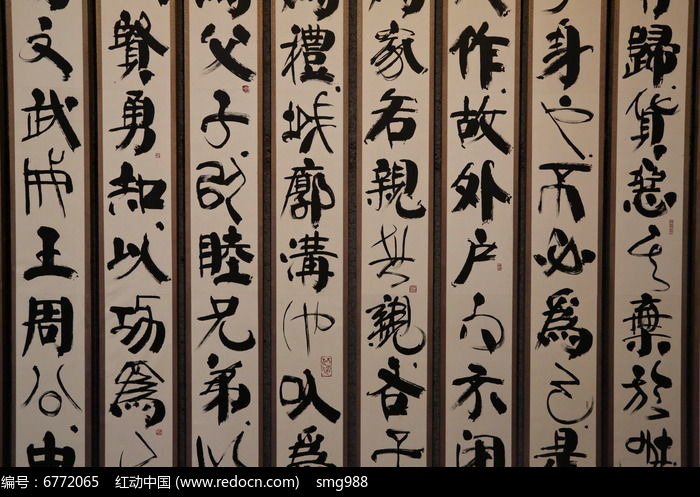 歸貨惡其棄於
身也不必為己是
作故外户而不閉
家各親其親各子
禮城廓溝池以為
父子以睦兄弟以
賢勇知以功為
文武成王周公由
编号：6772065 红动中国 (www.redocn.com) smg988